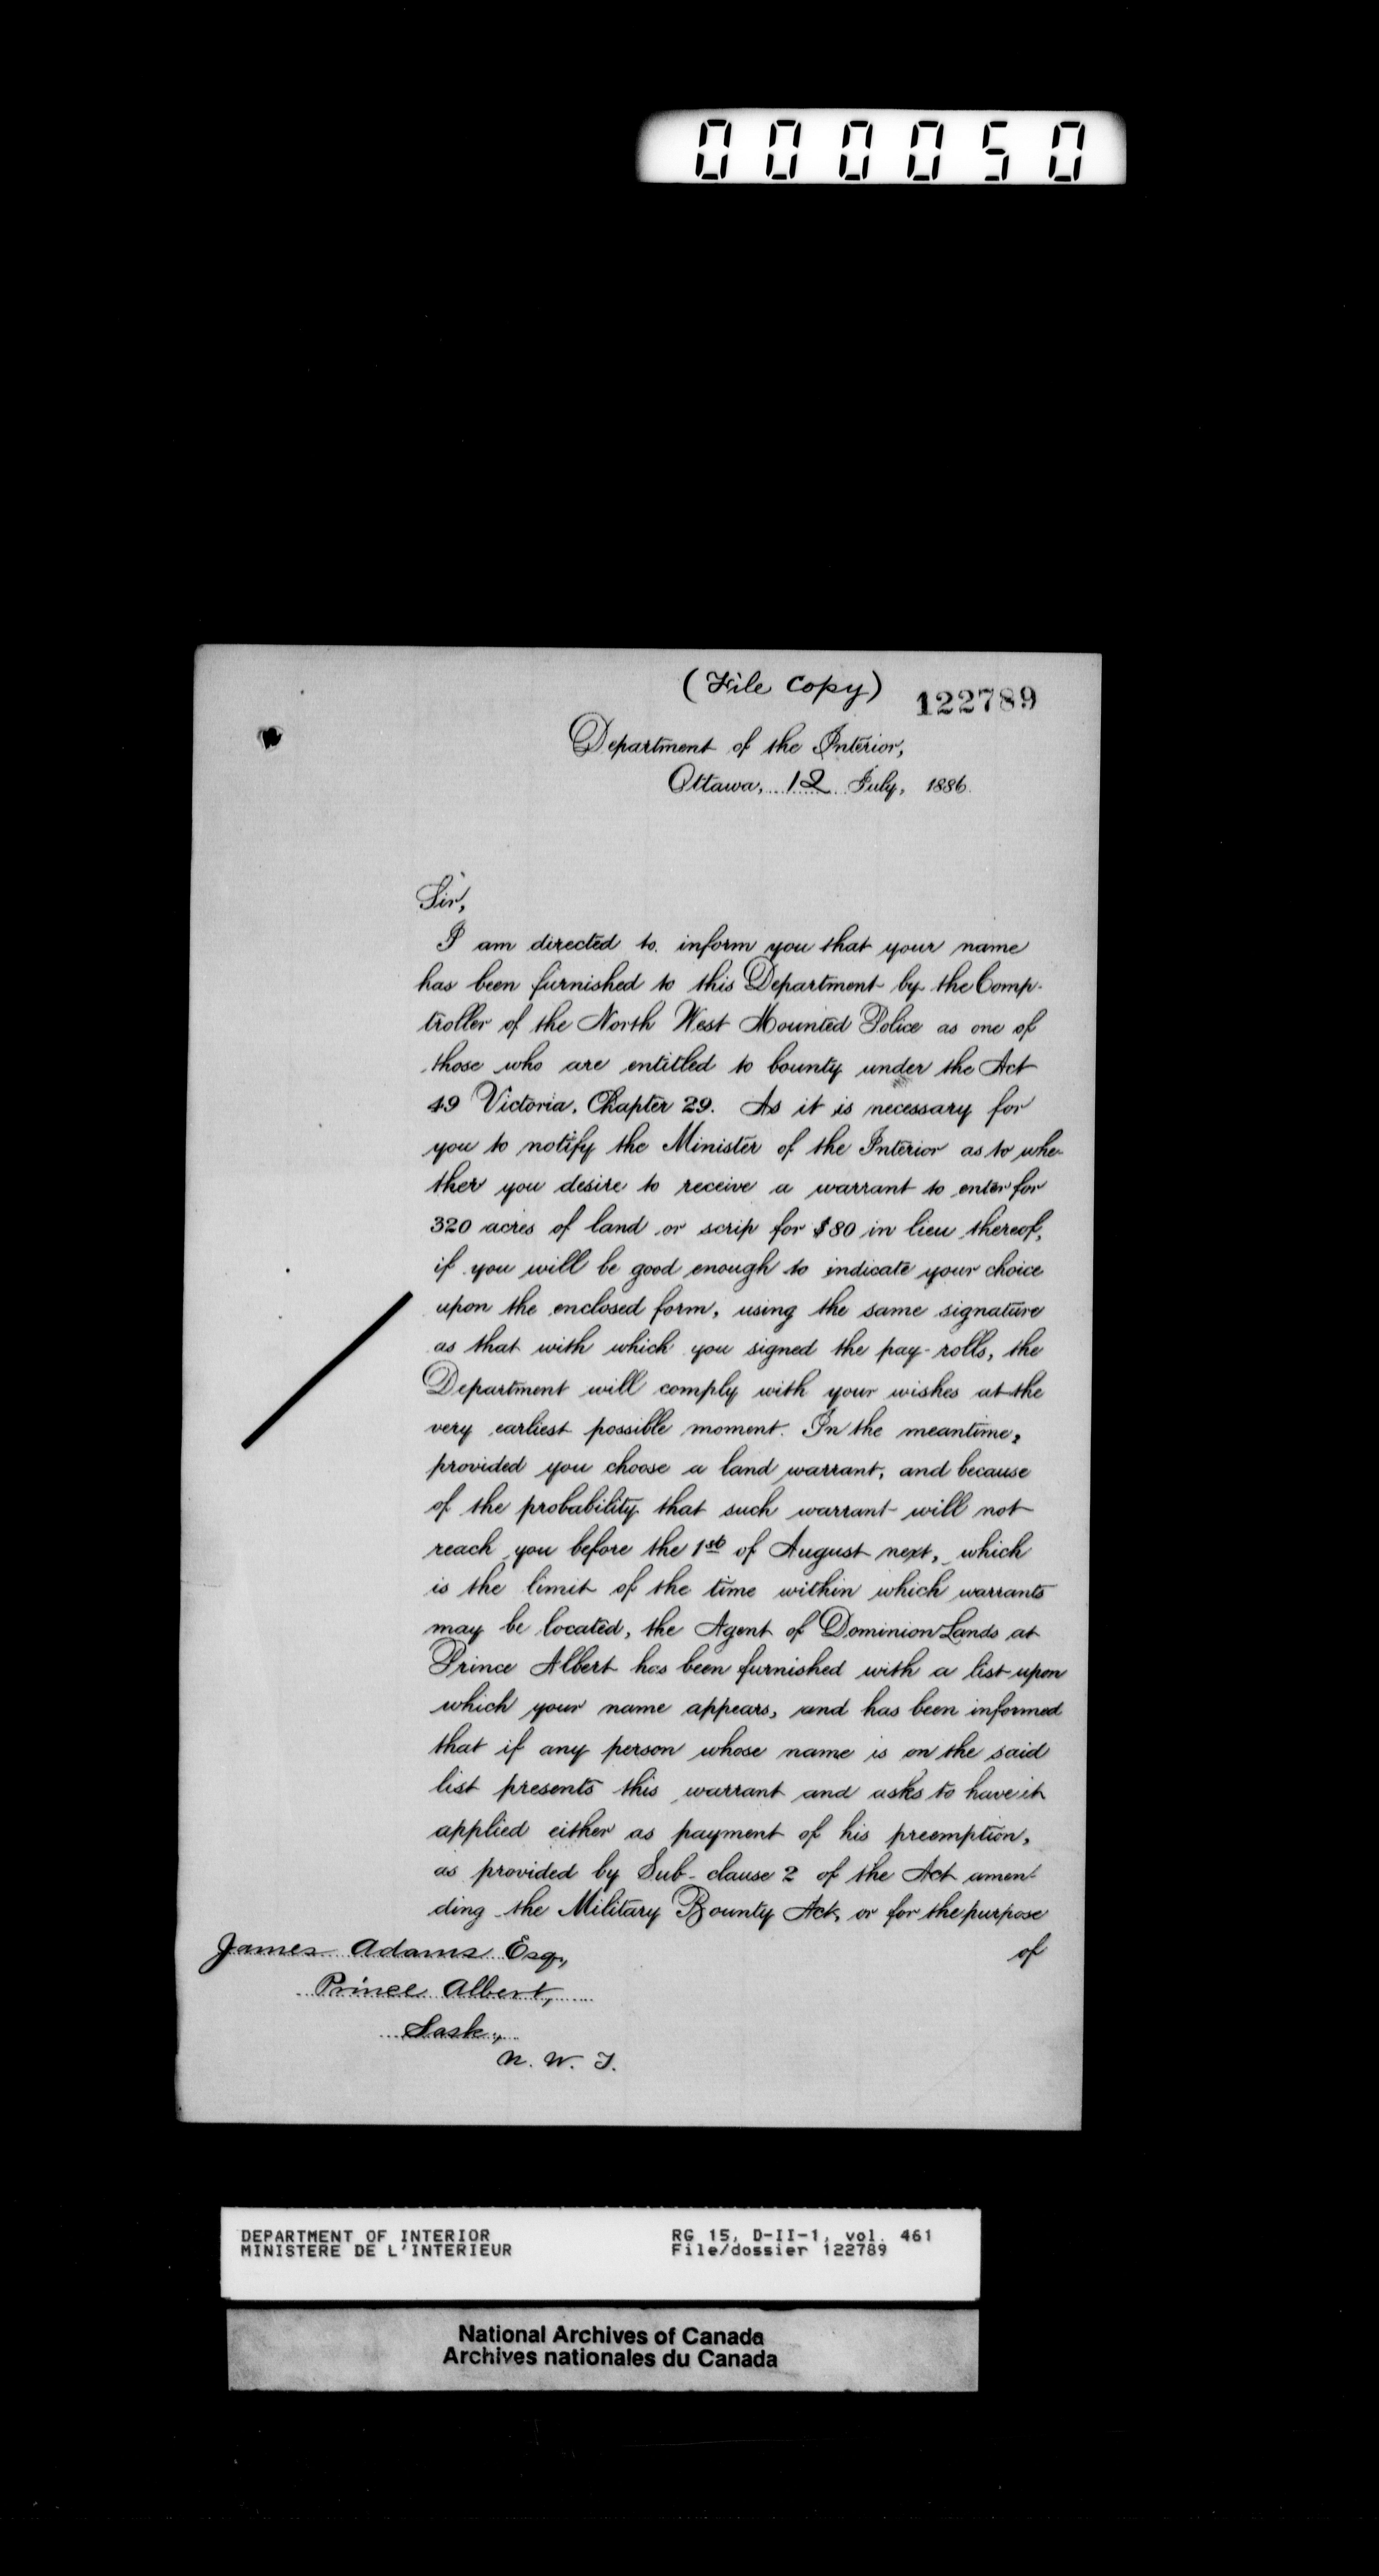 000050
(File Copy)
122789
Department of the Interior,
Ottawa, 12 July, 1886.
Sir,
I am directed to inform you that your name
has been furnished to this Department by the Comp-
troller of the North West Mounted Police as one of
those who are entitled to bounty under the Act
49 Victoria, Chapter 29. As it is necessary for
you to notify the Minister of the Interior as to whe-
ther you desire to receive a warrant to enter for
320 acres of land or scrip for $80 in lieu thereof,
if you will be good enough to indicate your choice
upon the enclosed form, using the same signature
as that with which you signed the pay-rolls, the
Department will comply with your wishes at the
very earliest possible moment. In the meantime,
provided you choose a land warrant, and because
of the probability that such warrant will not
reach you before the 1st of August next, which
is the limit of the time within which warrants
may be located, the Agent of Dominion Lands at
Prince Albert has been furnished with a list upon
which your name appears, and has been informed
that if any person whose name is on the said
list presents this warrant and asks to have it
applied either as payment of his preemption,
as provided by Sub-clause 2 of the Act amen-
ding the Military Bounty Act, or for the purpose
of
James Adams Esq.,
Prince Albert,
Sask.,
N. W. T.
DEPARTMENT OF INTERIOR
MINISTERE DE L'INTERIEUR
RG 15, D-II-1, vol. 461
File/dossier 122789
National Archives of Canada
Archives nationales du Canada